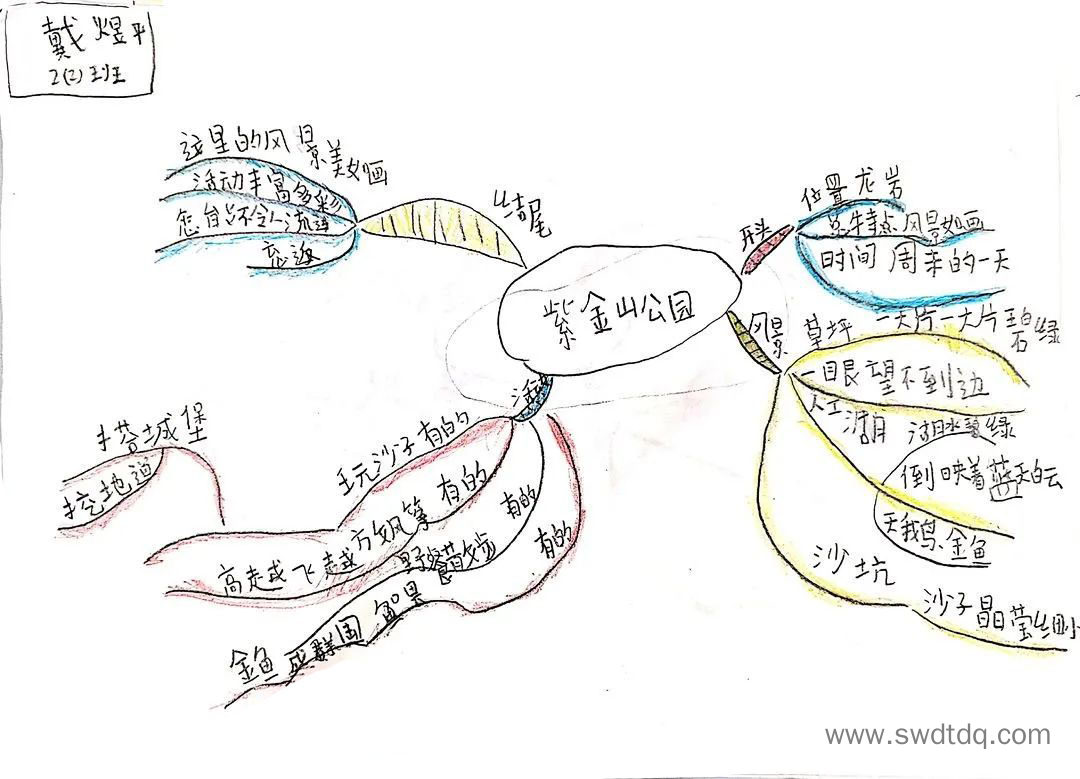 戴煜平
2(2)班
紫金山公园
开头
位置 龙岩
总特点 风景如画
时间 周末的一天
风景
草坪
一大片一大片 碧绿
一目艮望不到边
人工湖
湖水碧绿
倒映着蓝天白云
天鹅 金鱼
沙坑
沙子晶莹细小
活动
玩沙子 有的
搭城堡
挖地道
放风筝 有的
高 越飞越
野餐 散步 有的
有的
金鱼成群围
结尾
这里的风景美如画
活动丰富多彩
怎能不令人流连
忘返
www.swdtdq.com